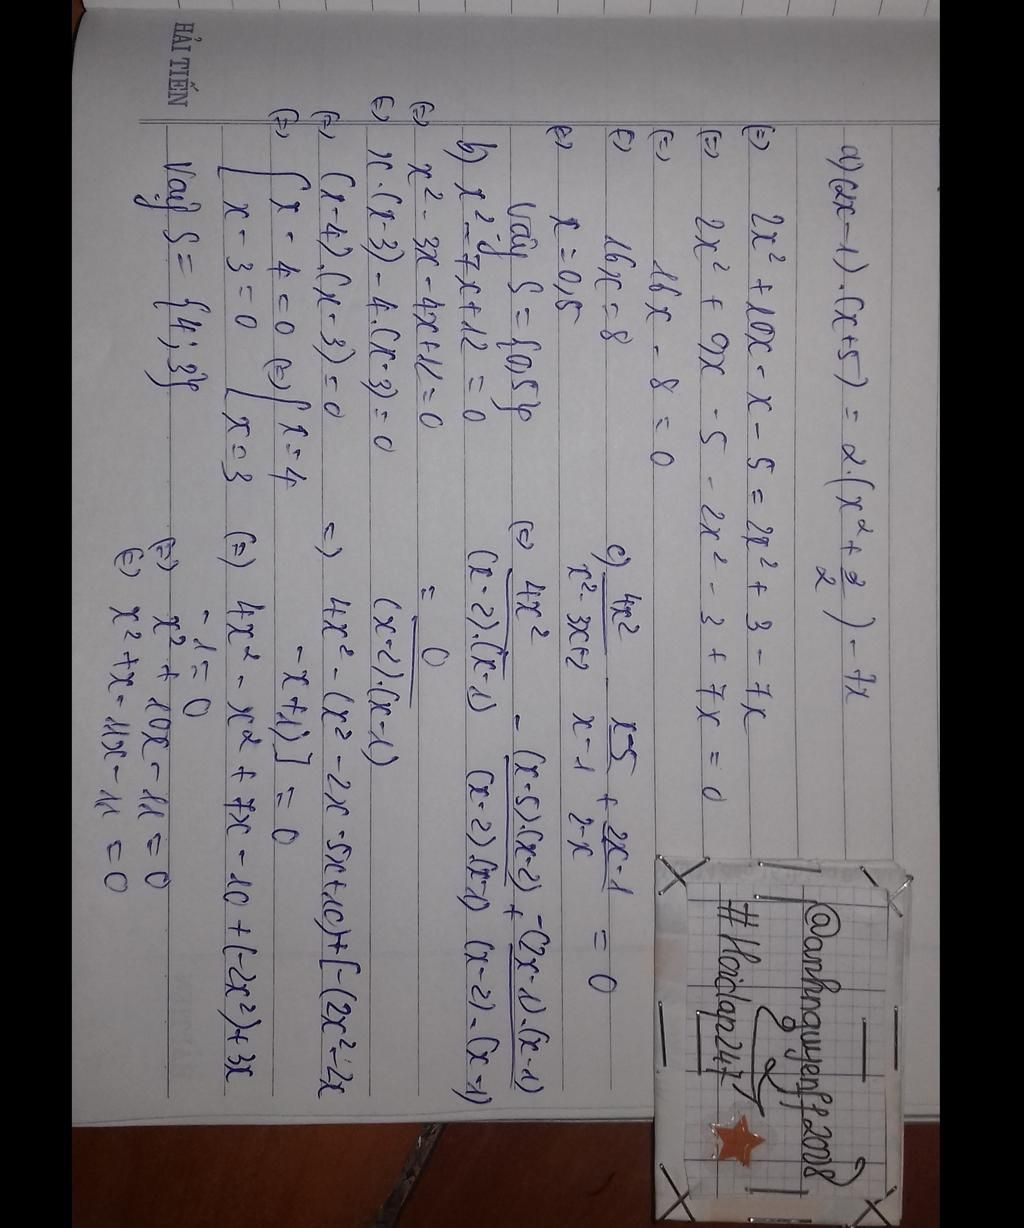 a) (2x-1).(x+5) = 2.(x² + 3/2) - 7x
(=) 2x² + 10x - x - 5 = 2x² + 3 - 7x
(=) 2x² + 9x - 5 - 2x² - 3 + 7x = 0
(=) 16x - 8 = 0
(=) 16x = 8
(=) x = 0,5
Vậy S = {0,5}
b) x² - 7x + 12 = 0
(=) x² - 3x - 4x + 12 = 0
(=) x.(x-3) - 4.(x-3) = 0
(=) (x-4).(x-3) = 0
(=) [x - 4 = 0 (=) [x = 4
[x - 3 = 0 [x = 3
Vậy S = {4; 3}
c) 4x²/x² - 3x + 2 - x-5/x-1 + 2x-1/2-x = 0
(=) 4x²/(x-2).(x-1) - (x-5).(x-2)/(x-2).(x-1) + -(2x-1).(x-1)/(x-2).(x-1)
= 0/(x-2).(x-1)
=) 4x² - (x² - 2x - 5x + 10) + [-(2x² - 2x
- x + 1)] = 0
(=) 4x² - x² + 7x - 10 + (-2x²) + 3x
- 1 = 0
(=) x² + 10x - 11 = 0
(=) x² + x - 11x - 11 = 0
@anhnguyen972008
#Hoidap247
HẢI TIẾN